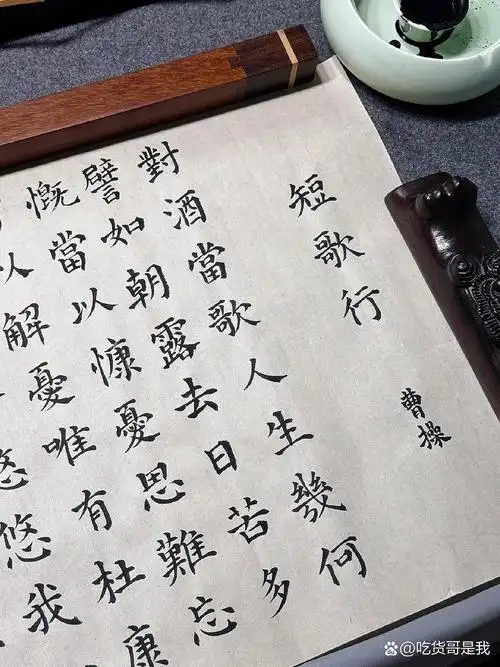 短歌行
曹操
對酒當歌人生幾何
譬如朝露去日苦多
慨當以慷憂思難忘
以解憂唯有杜康
悠悠我
吃货哥是我